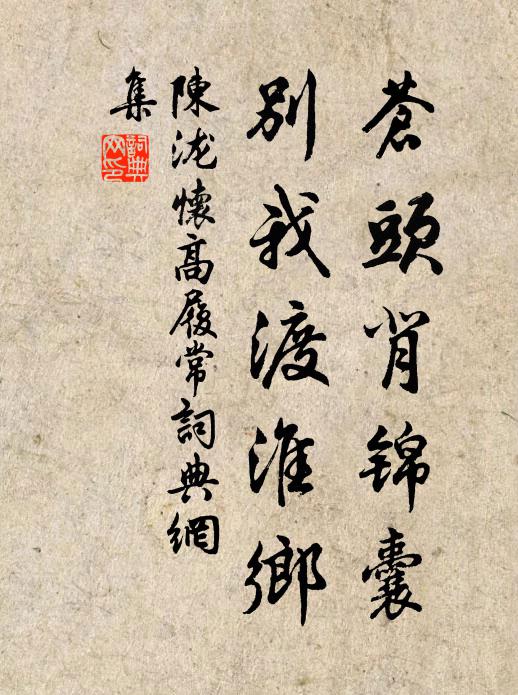 蒼頭肖锦囊
別我渡淮鄉
陳瀧懷高履常詞典網
集
詞典
网印